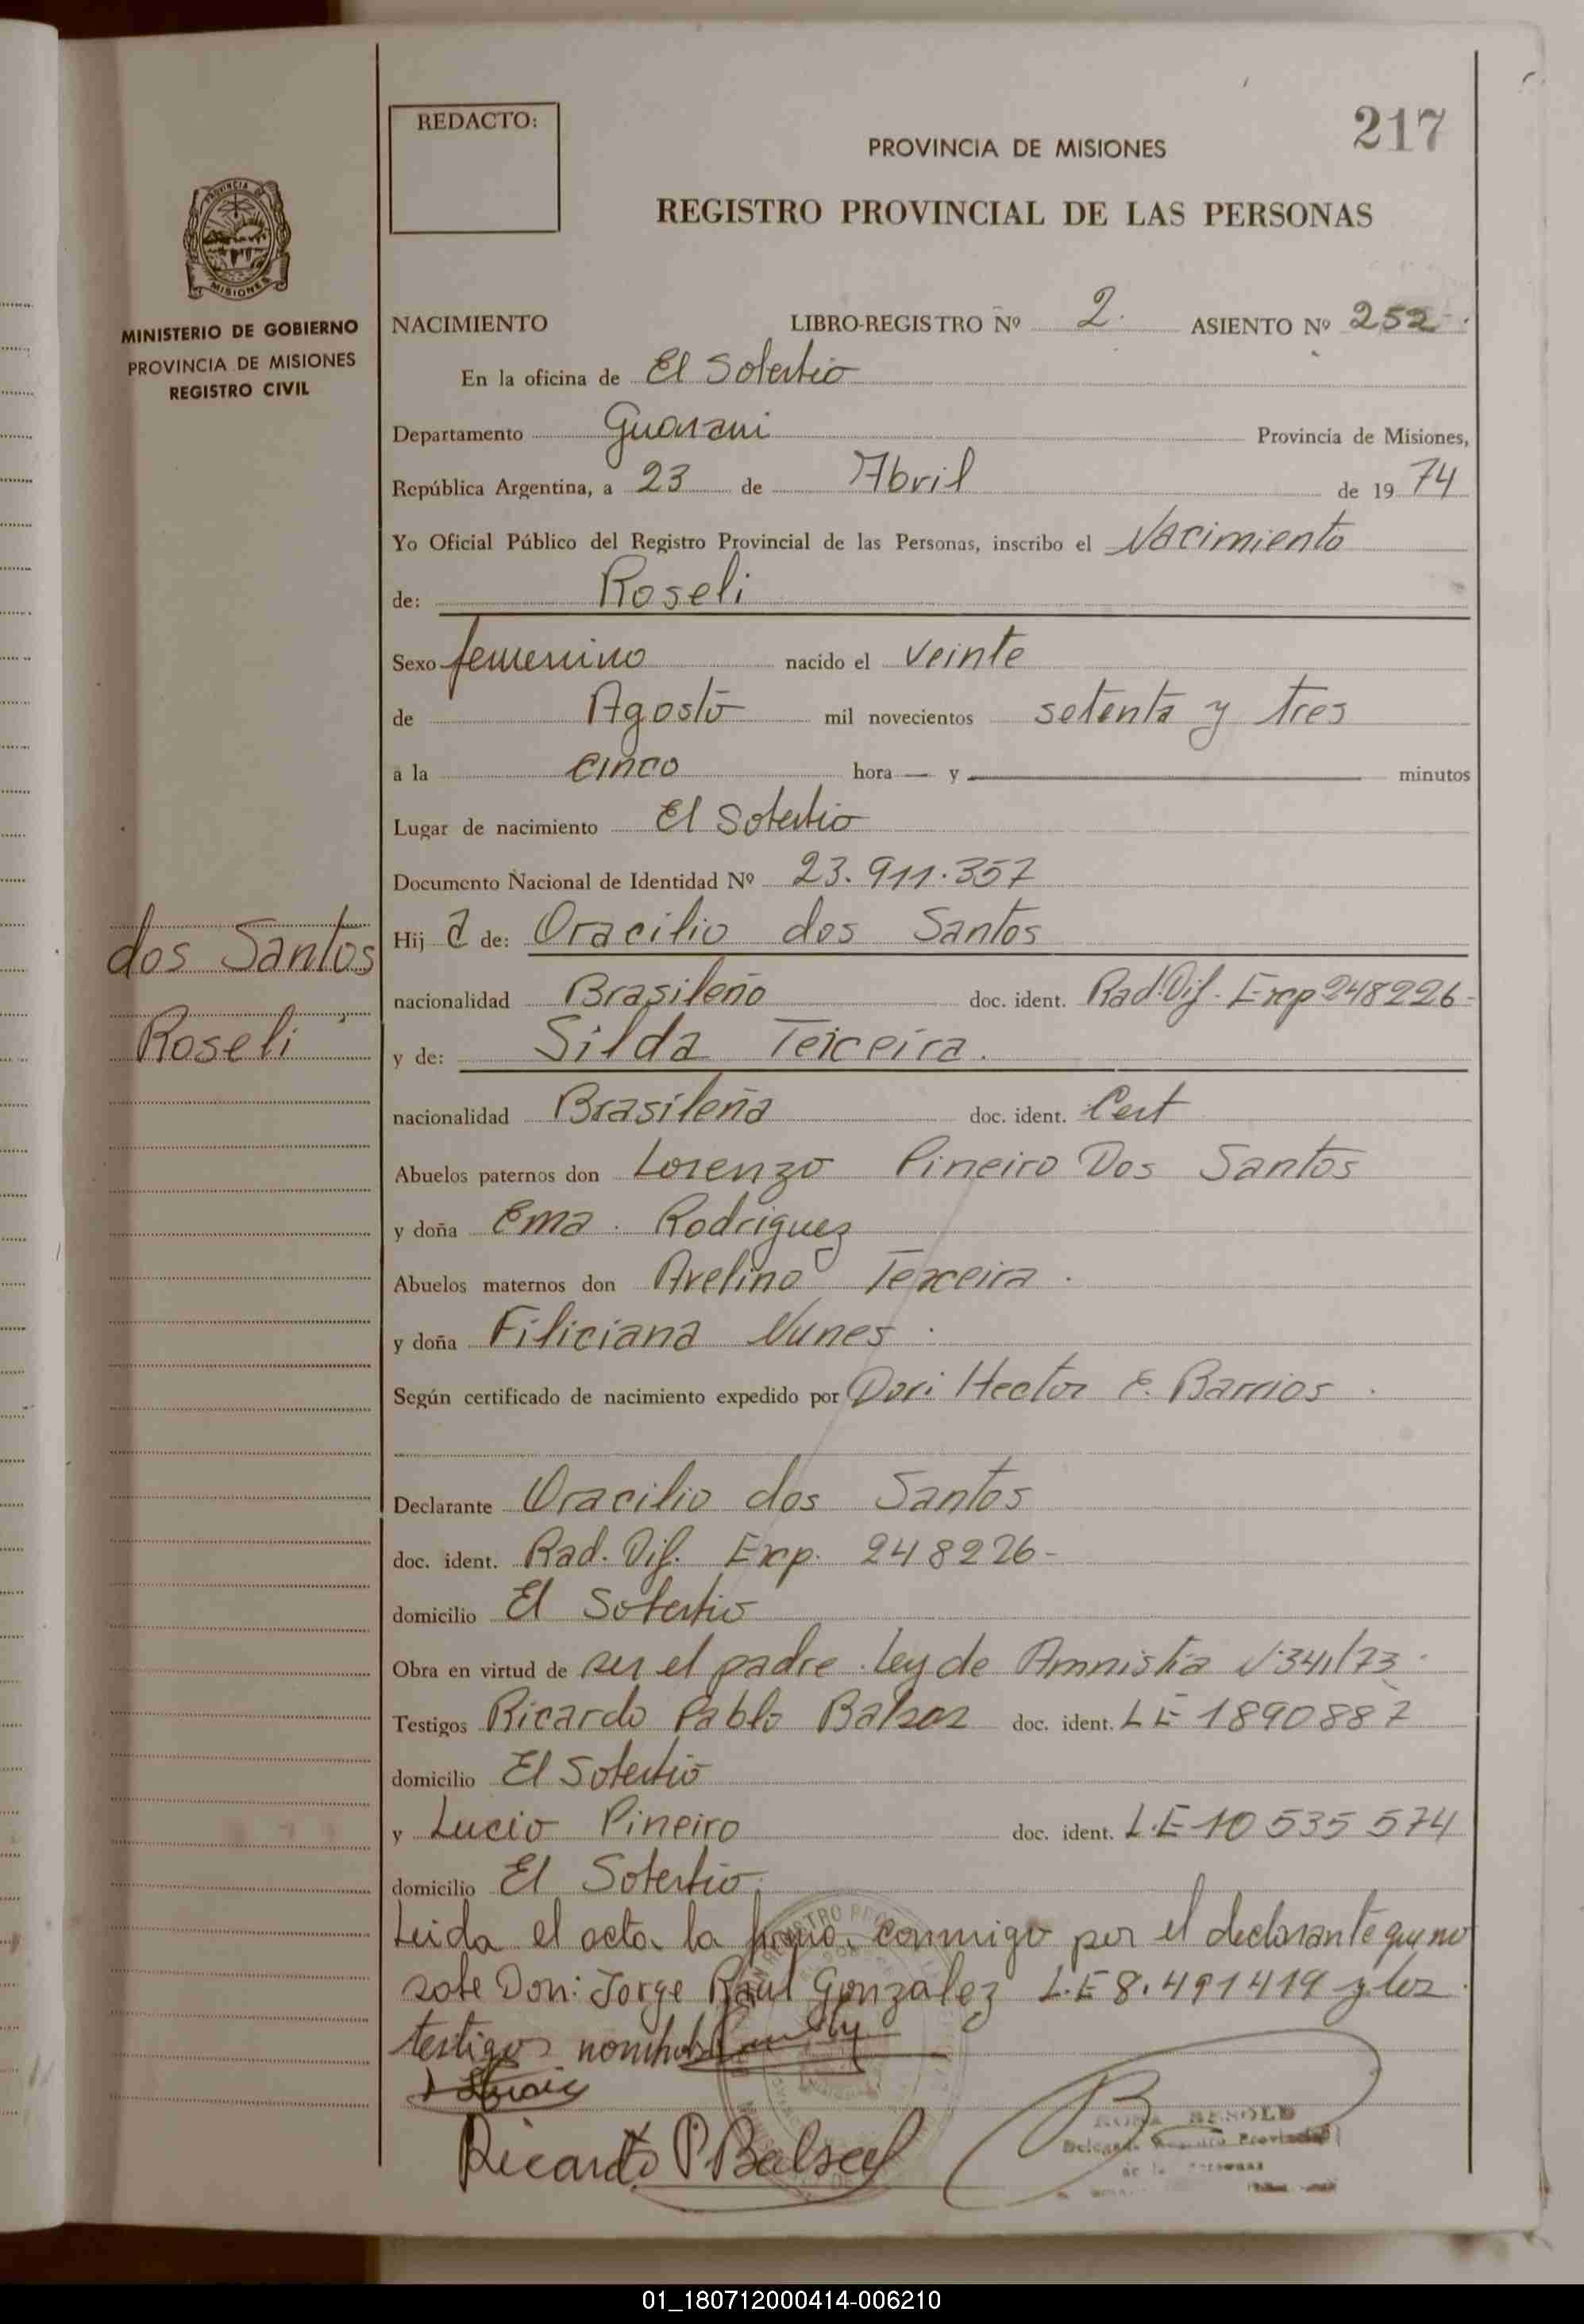 217
REDACTO:
PROVINCIA DE MISIONES
REGISTRO PROVINCIAL DE LAS PERSONAS
PROVINCIA DE
MISIONES
MINISTERIO DE GOBIERNO
PROVINCIA DE MISIONES
REGISTRO CIVIL
NACIMIENTO LIBRO-REGISTRO Nº 2. ASIENTO Nº 252
En la oficina de El Sobertio
Departamento Guarani Provincia de Misiones,
República Argentina, a 23 de Abril de 19 74
Yo Oficial Público del Registro Provincial de las Personas, inscribo el Nacimiento
de: Roseli
Sexo femenino nacido el veinte
de Agosto mil novecientos setenta y tres
a la cinco hora — y — minutos
Lugar de nacimiento El Sobertio
Documento Nacional de Identidad Nº 23.911.357
dos Santos
Roseli
Hij a de: Oracilio dos Santos
nacionalidad Brasileño doc. ident. Rad. Dif. Exp 248226-
y de: Silda Teiceira.
nacionalidad Brasileña doc. ident. Cert
Abuelos paternos don Lorenzo Pineiro Dos Santos
y doña Ema. Rodriguez
Abuelos maternos don Avelino Texceira.
y doña Filiciana Nunes.
Según certificado de nacimiento expedido por Don: Hector E. Barrios.
Declarante Oracilio dos Santos
doc. ident. Rad. Dif. Exp. 248226-
domicilio El Sobertio
Obra en virtud de ser el padre. Ley de Amnistia Nº 341/73.
Testigos Ricardo Pablo doc. ident. L E 1890887
domicilio El Sobertio
y Lucio Pineiro doc. ident. L.E 10 535 574
domicilio El Sobertio.
Leida el acta la firma conmigo por el declarante que no
sabe Don: Jorge Raul Gonzalez L.E 8.491419 y los
testigos
Ricardo P. Balsa
Provincial
01_180712000414-006210